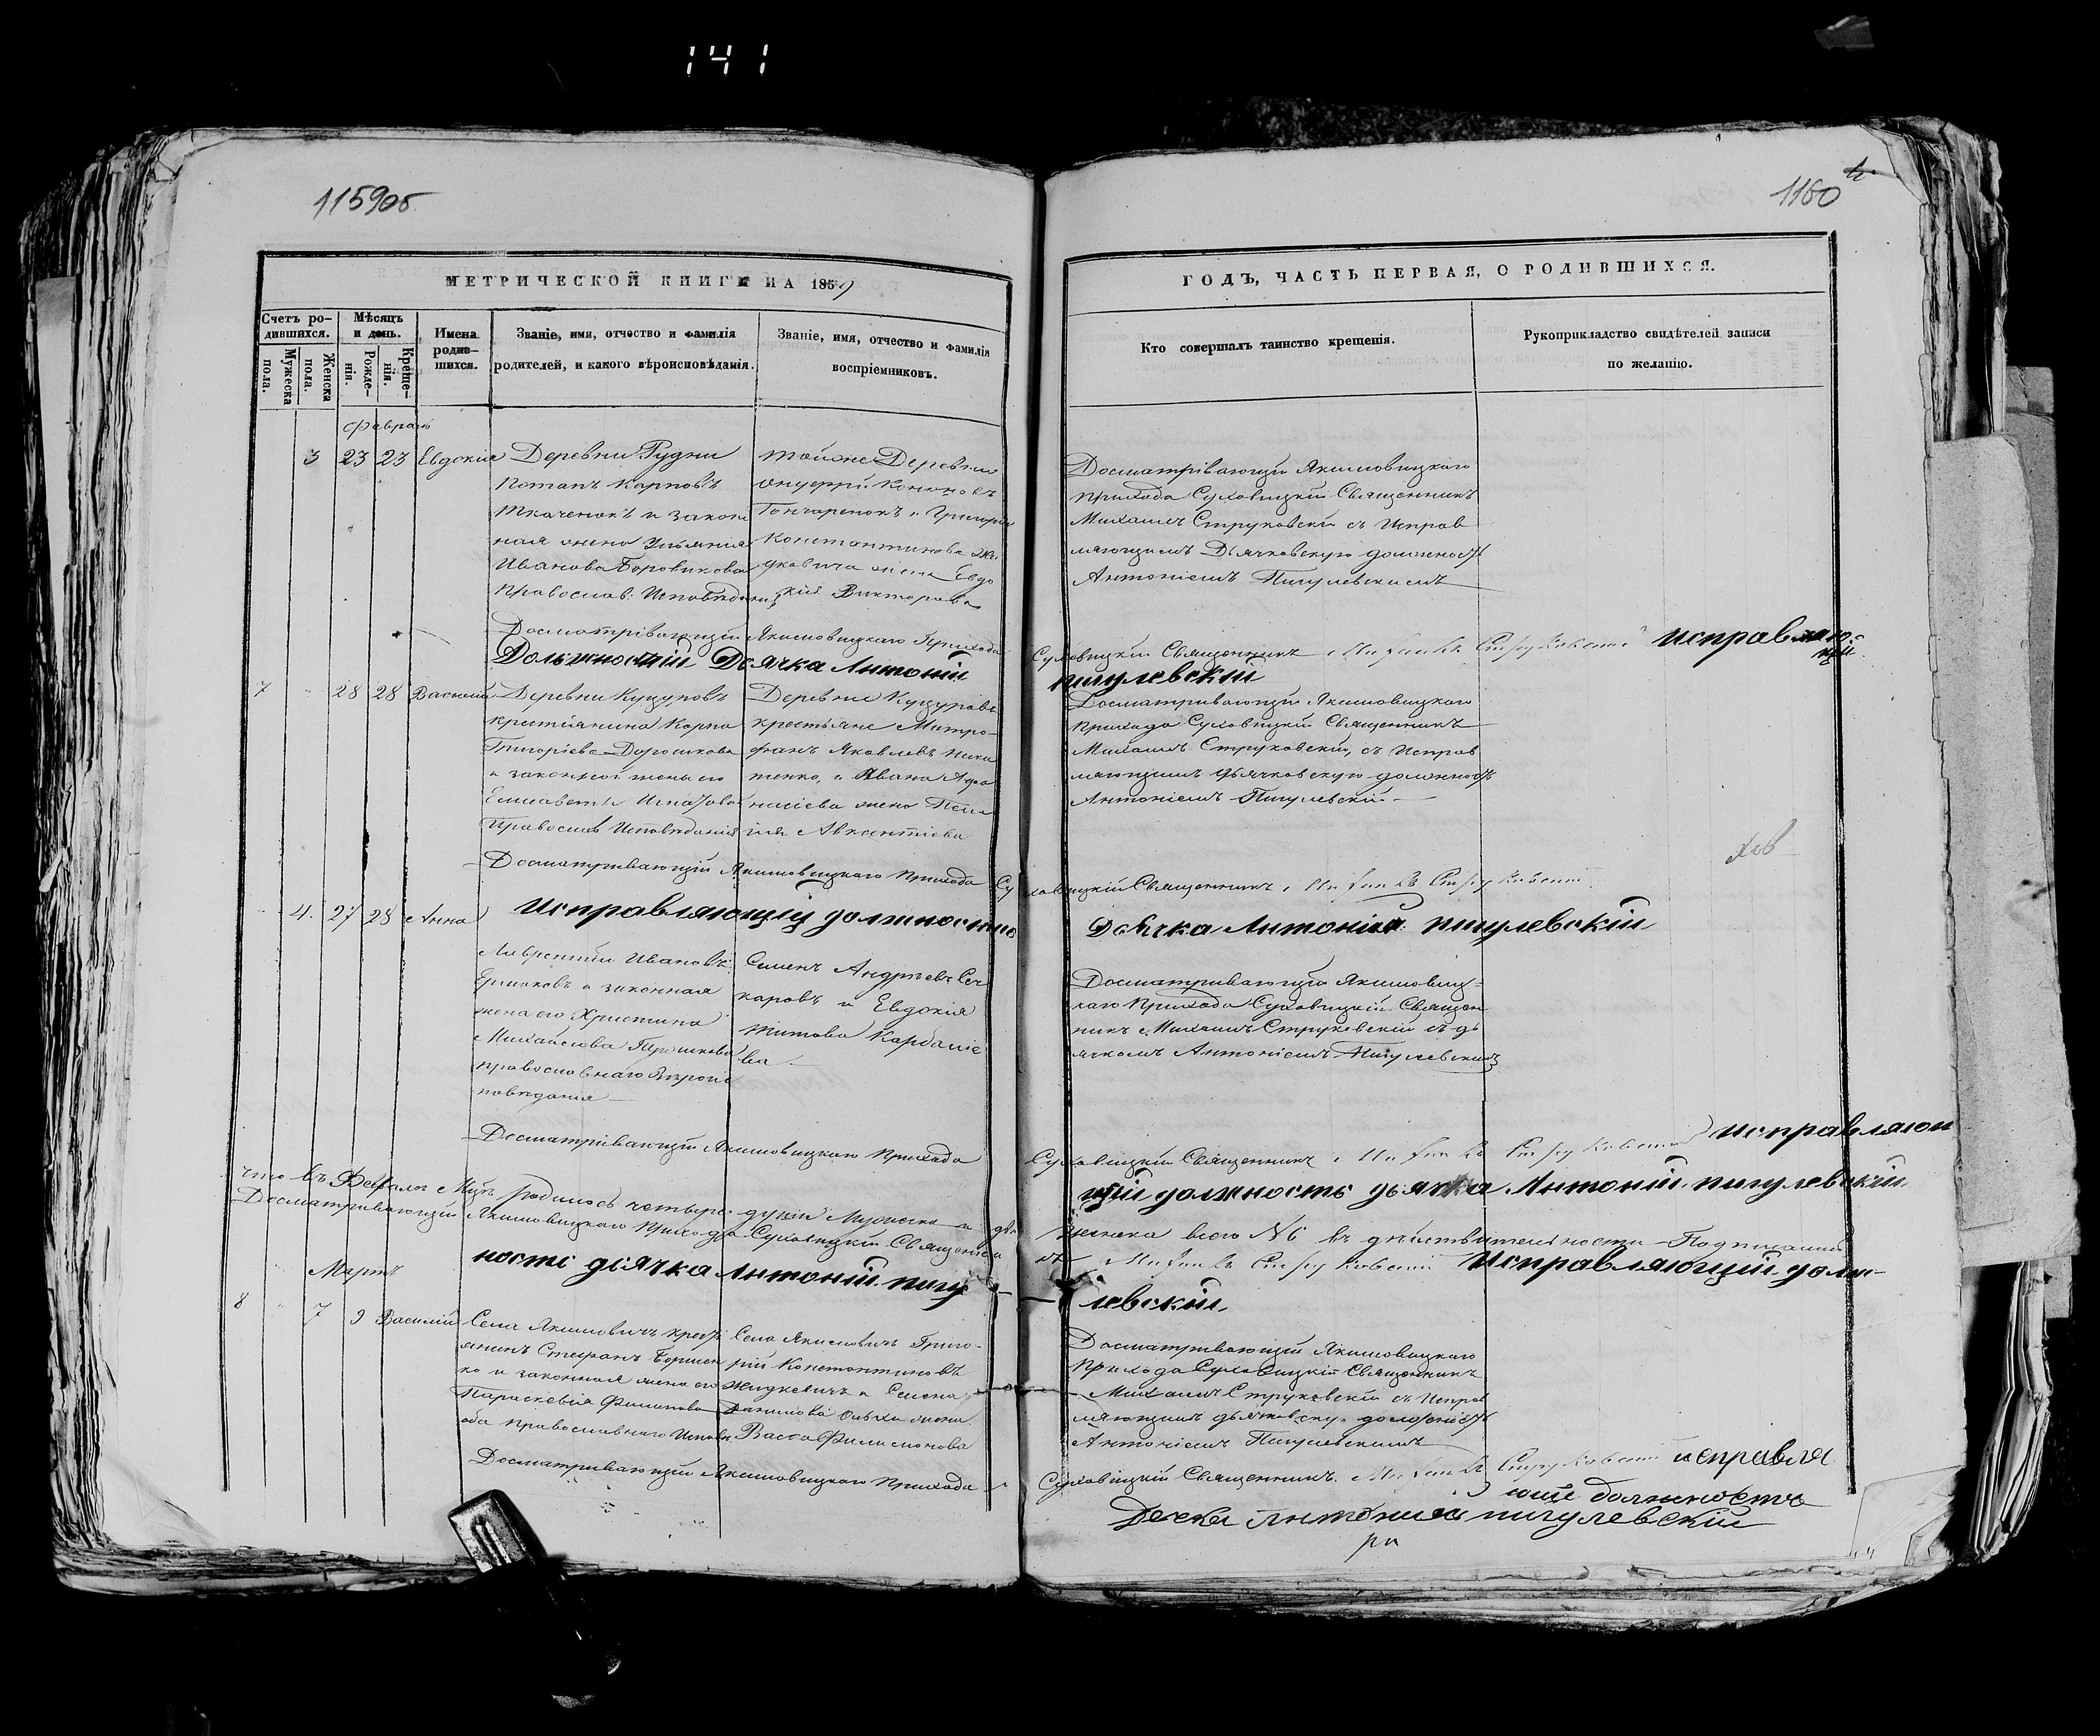 141
1159об
1160
МЕТРИЧЕСКОЙ КНИГИ НА 1859
ГОДЪ, ЧАСТЬ ПЕРВАЯ, О РОДИВШИХСЯ.
Счетъ ро-
дившихся.
Мужеска
пола.
Женска
пола.
Мѣсяцъ
и день.
Рожде-
нія.
Креще-
нія.
Имена
родив-
шихся.
Званіе, имя, отчество и фамилія
родителей, и какого вѣроисповѣданія.
Званіе, имя, отчество и фамилія
воспріемниковъ.
Кто совершалъ таинство крещенія.
Рукоприкладство свидѣтелей записи
по желанію.
Февраль
3 23 23 Евдокія
Деревни Рудни
Потапъ Карповъ
Ткаченокъ и закон
ная жена
Иванова Боровикова
Православ: Исповѣданія
Тойже Деревни
Кононовъ
Гончаренокъ и Григорія
Константинова Жи
дковича жена Евдо
кія Викторова
Досматривающій Якимовицкаго
прихода Суховицкій Священникъ
Михаилъ Струковскій съ Исправ
ляющимъ Дьячковскую должность
Антоніемъ Пигулевскимъ
Досматривающій Якимовицкаго Прихода
Суховицкій Священникъ Михаилъ Струковскій исправляю-
щій
Должностій Дсячка Антоній
пигулевскій
7 28 28 Василій
Деревни Куцуровъ
крестьянина Карпа
Григоріева Дорошкова
и законной жены его
Елисаветы Игнатова
Православ Исповѣданія
Деревни Куцуровъ
крестьяне Митро-
фанъ Яковлевъ Ники
тенко, и Ивана Афа
насіева жена Пела
гія Авксентіева
Досматривающій Якимовицкаго
Прихода Суховицкій Священникъ
Михаилъ Струковскій, съ Исправ
ляющимъ дьячковскую должность
Антоніемъ Пигулевскій
Досматривающій Якимовицкаго Прихода Су
ховицкій Священникъ Михаилъ Струковскій
4. 27 28 Анна
Исправляющій должностію
Дсячка Антоній пигулевскій
Лаврентій Ивановъ
Ермаковъ и законная
жена его Христина
Михайлова Терошкова
православнаго Вѣроис
повѣданія
Семенъ Андреевъ
каровъ и Евдокія
Титова
ва
Досматривающій Якимовиц-
каго Прихода Суховицкій Священ
никъ Михаилъ Струковскій съ дь
ячкомъ Антоніемъ Пигулевскимъ
Досматривающій Якимовицкаго Прихода
Суховицкій Священникъ Михаилъ Струковскій исправляющ
щій должность дьячка Антоній пигулевскій
Что въ Февралѣ Мцѣ родилось четыре души Мужеска и двѣ
Женска всего №6 въ дѣйствительности Подписали
Досматривающій Якимовицкаго Прихода Суховицкій Священни
къ Михаилъ Струковскій Исправляющій долж-
ность дсячка Антоній пигу
левскій
Мартъ
8 7 9 Василій
Села Якимовичъ крест
янинъ Стефанъ
ко и законная жена его
Параскевія Филипова
оба православнаго Исповѣ
Села Якимовичъ Григо-
рій Константиновъ
Жидкевичъ и Семена
Данилова жена
Васса Филимонова
Досматривающій Якимовицкаго
Прихода Суховицкій Священникъ
Михаилъ Струковскій съ Исправ
ляющимъ дьячковскую должность
Антоніемъ Пигулевскимъ
Досматривающій Якимовицкаго Прихода
Суховицкій Священникъ Михаилъ Струковскій исправля
ющій должность
Дсячка Антоній пигулевскій